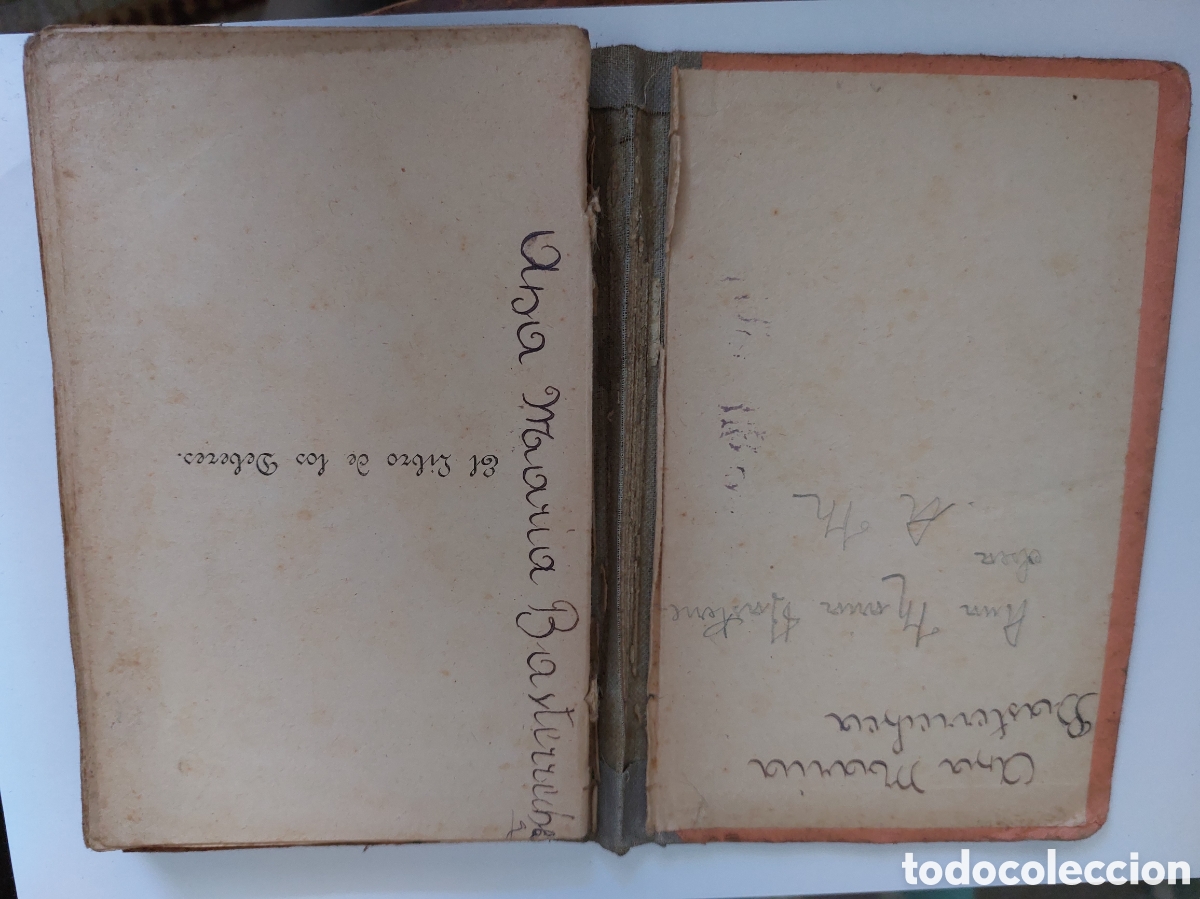 Ana Maria Basterreche
El Libro de los Deberes.
Ana Maria
Basterrechea
Ana Maria Basterre
chea
A M
todocoleccion